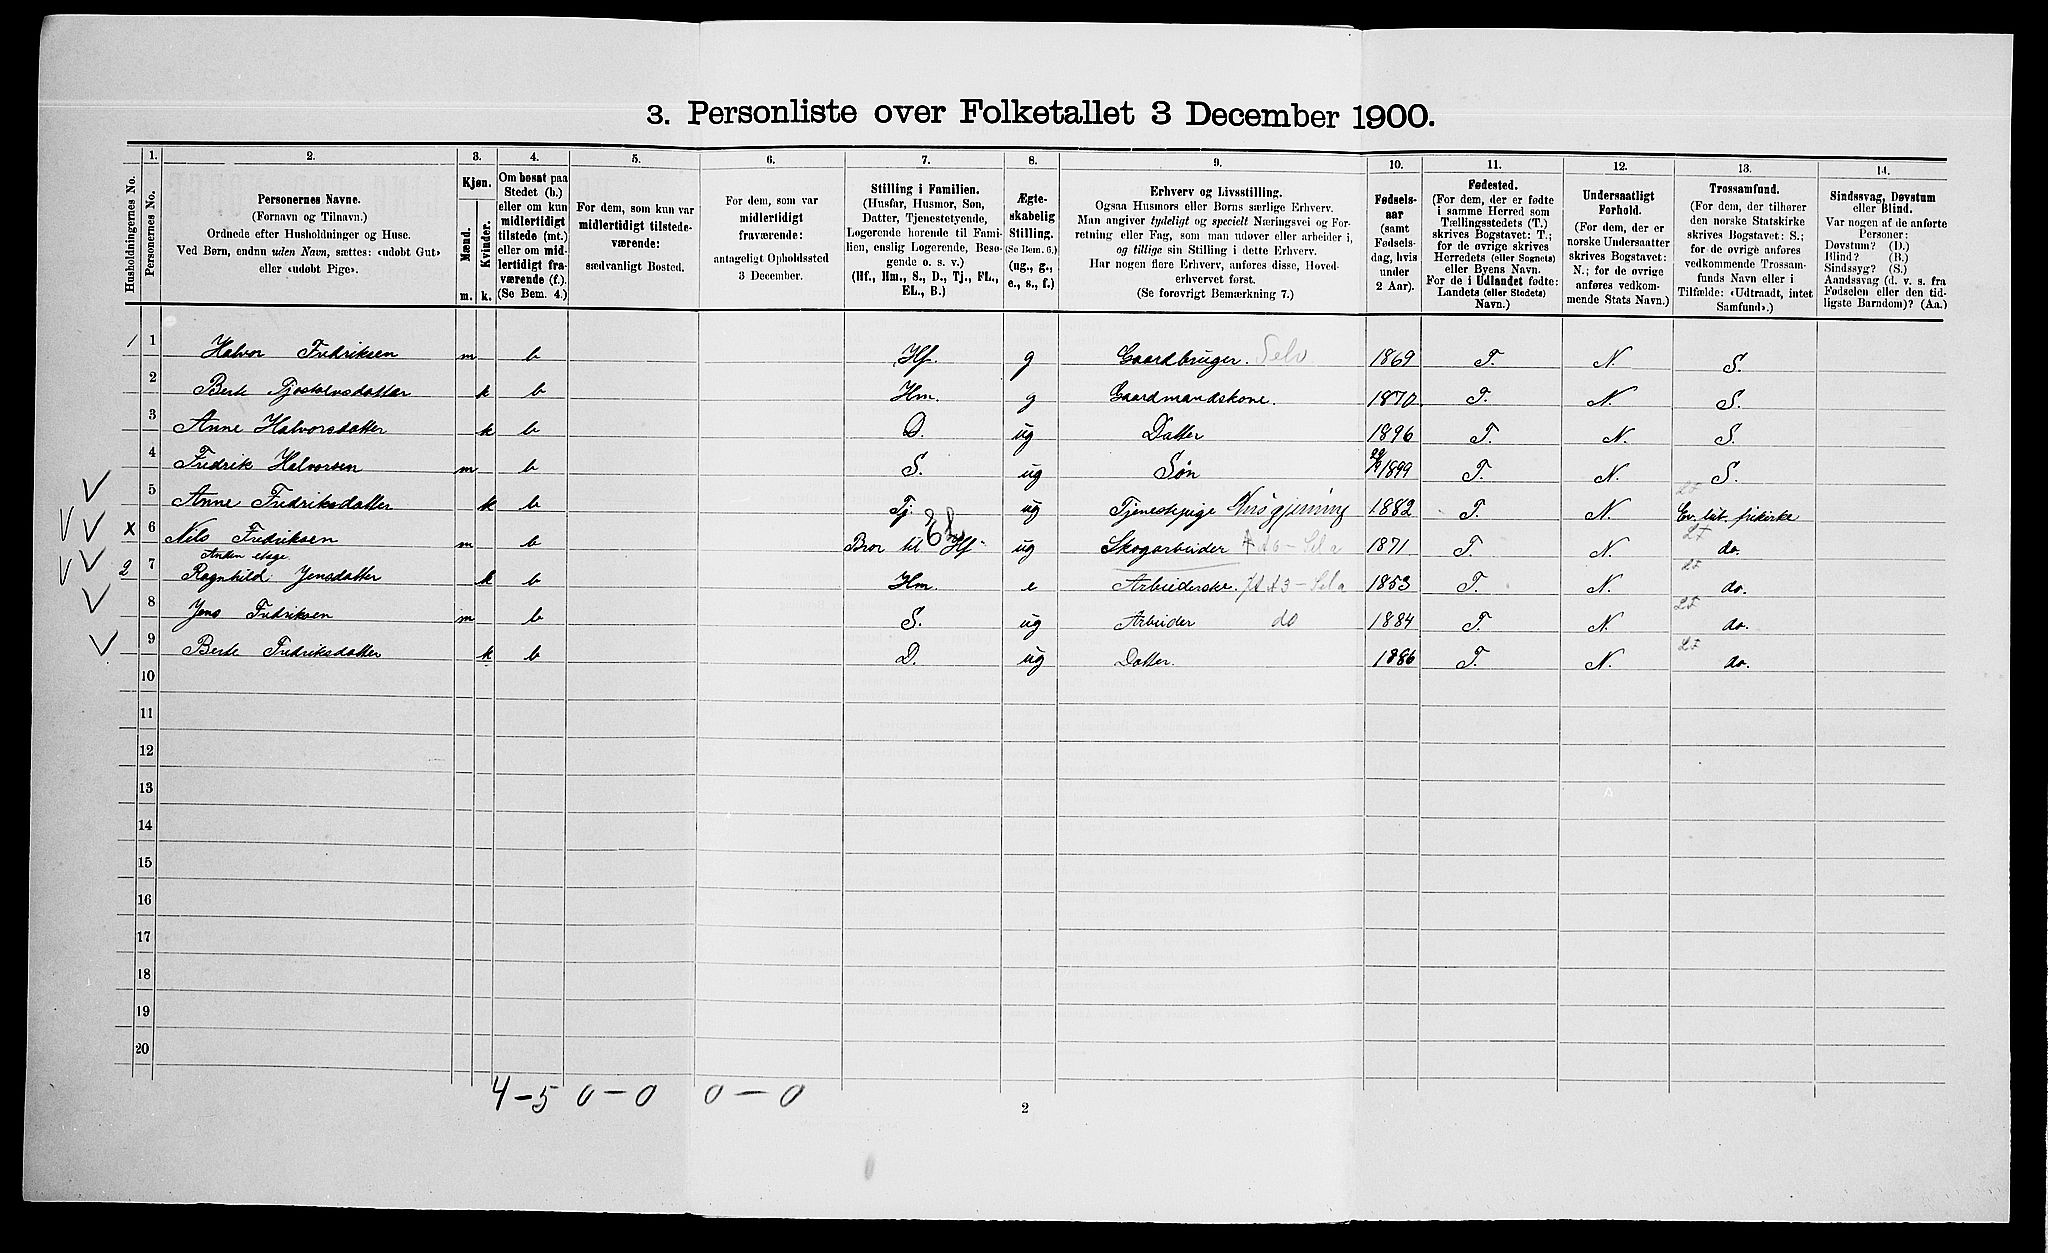 3. Personliste over Folketallet 3 December 1900.
Husholdningernes No.
1.
Personernes No.
2.
Personernes Navne.
(Fornavn og Tilnavn.)
Ordnede efter Husholdninger og Huse.
Ved Børn, endnu uden Navn, sættes: «udøbt Gut»
eller «udøbt Pige».
3.
Kjøn.
Mænd.
Kvinder.
m. k.
4.
Om bosat paa
Stedet (b.)
eller om kun
midlertidigt
tilstede (mt.)
eller om mid-
lertidigt fra-
værende (f.).
(Se Bem. 4.)
5.
For dem, som kun var
midlertidigt tilstede-
værende:
sædvanligt Bosted.
6.
For dem, som var
midlertidigt
fraværende:
antageligt Opholdssted
3 December.
7.
Stilling i Familien.
(Husfar, Husmor, Søn,
Datter, Tjenestetyende,
Logerende hørende til Fami-
lien, enslig Logerende, Besø-
gende o. s. v.)
(Hf., Hm., S., D., Tj., FL.,
EL., B.)
8.
Ægte-
skabelig
Stilling.
(Se Bem. 6.)
(ug., g.,
e., s., f.)
9.
Erhverv og Livsstilling.
Ogsaa Husmors eller Børns særlige Erhverv.
Man angiver tydeligt og specielt Næringsvei og For-
retning eller Fag, som man udøver eller arbeider i,
og tillige sin Stilling i dette Erhverv.
Har nogen flere Erhverv, anføres disse, Hoved-
erhvervet først.
(Se forøvrigt Bemærkning 7.)
10.
Fødsels-
aar
(samt
Fødsels-
dag, hvis
under
2 Aar).
11.
Fødested.
(For dem, der er fødte
i samme Herred som
Tællingsstedets (T.)
skrives Bogstavet: T.;
for de øvrige skrives
Herredets (eller Sognets)
eller Byens Navn.
For de i Udlandet fødte:
Landets (eller Stedets)
Navn.)
12.
Undersaatligt
Forhold.
(For dem, der er
norske Undersaatter
skrives Bogstavet:
N.; for de øvrige
anføres vedkom-
mende Stats Navn.)
13.
Trossamfund.
(For dem, der tilhører
den norske Statskirke
skrives Bogstavet: S.;
for de øvrige anføres
vedkommende Trossam-
funds Navn eller i
Tilfælde: «Udtraadt, intet
Samfund».)
14.
Sindssvag, Døvstum
eller Blind.
Var nogen af de anførte
Personer:
Døvstum? (D.)
Blind? (B.)
Sindssyg? (S.)
Aandssvag (d. v. s. fra
Fødselen eller den tid-
ligste Barndom)? (Aa.)
1 1 Halvor Fredriksen m b Hf. g Gaardbruger. Selv 1869 T. N. S.
2 Berte Tjostolvsdatter k b Hm. g Gaardmandskone. 1870. T. N. S.
3 Anne Halvorsdatter k b D. ug Datter 1896 T. N. S.
4 Fredrik Halvorsen m b S. ug Søn 1899 T. N. S.
5 Anne Fredriksdatter k b Tj. ug Tjenestpige Husgjerning 1882 T. N. Ev. lut. frikirke
x 6 Nels Fredriksen m b Bror til Hf. El ug Skogarbeider 1871 T. N. do.
Anden etage.
2 7 Ragnhild Jensdatter k b Hm. e Arbeiderske. 1853 T. N. do.
8 Jens Fredriksen m b S. ug Arbeider do 1884 T. N. do.
9 Berte Fredriksdatter k b D. ug Datter. 1886 T. N. do.
10
11
12
13
14
15
16
17
18
19
20
4-5 0-0 0-0
2